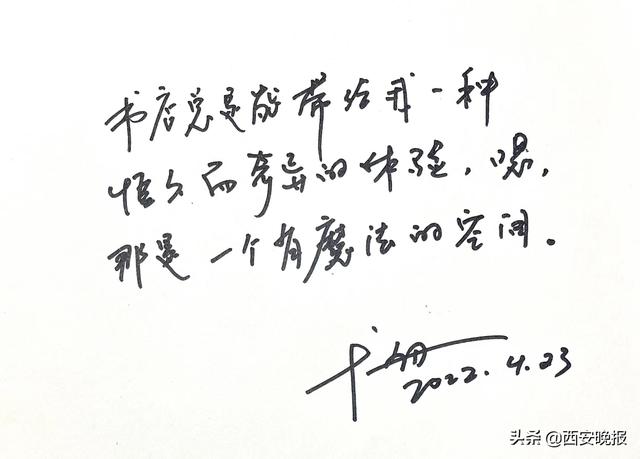 书店总是能带给我一种
恒久而奇异的体验,嗯,
那是一个有魔法的空间。
2022.4.23
头条 @西安晚报